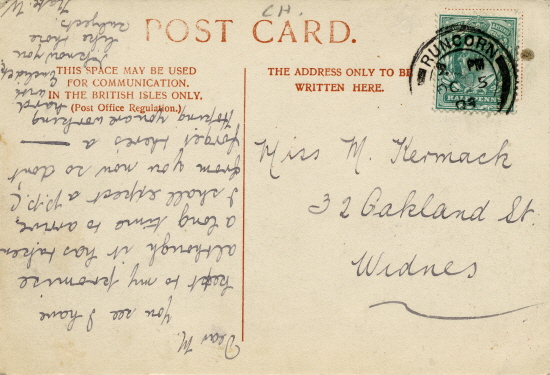 CH.
POST CARD.
THIS SPACE MAY BE USED
FOR COMMUNICATION.
IN THE BRITISH ISLES ONLY.
(Post Office Regulation.)
THE ADDRESS ONLY TO BE
WRITTEN HERE.
RUNCORN
PM
5
04
HALFPENNY
Miss M. Kermack
32 Oakland St.
Widnes
Dear M.
You see I have
kept to my promise
although it has taken
a long time to arrive,
I shall expect a p.p.c
from you now so dont
forget there's a
Hoping you're working
hard
with
Euclid &c
I know you
like those
subjects.